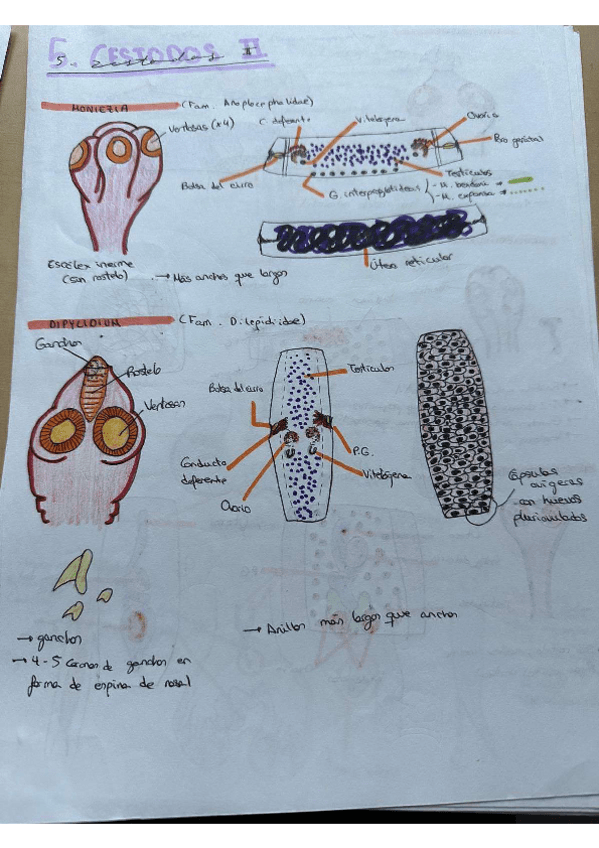 5. CESTODOS II.
MONIEZIA
(Fam. Anoplocephalidae)
Ventosas (x4)
C. deferente
Vitelógena
Ovario
Poro genital
Bolsa del cirro
Testículos
G. interproglotídeas
- M. benedeni →
- M. expansa →
Escólex inerme
(sin rostelo)
→ Más anchos que largos
Útero reticular
DIPYLIDIUM
(Fam. Dilepididae)
Ganchos
Rostelo
Ventosas
Bolsa del cirro
Testículos
Conducto
deferente
P.G.
Vitelógena
Ovario
Cápsulas
ovígeras
con huevos
→ ganchos
→ 4-5 coronas de ganchos en
forma de espina de rosal
→ Anillos más largos que anchos